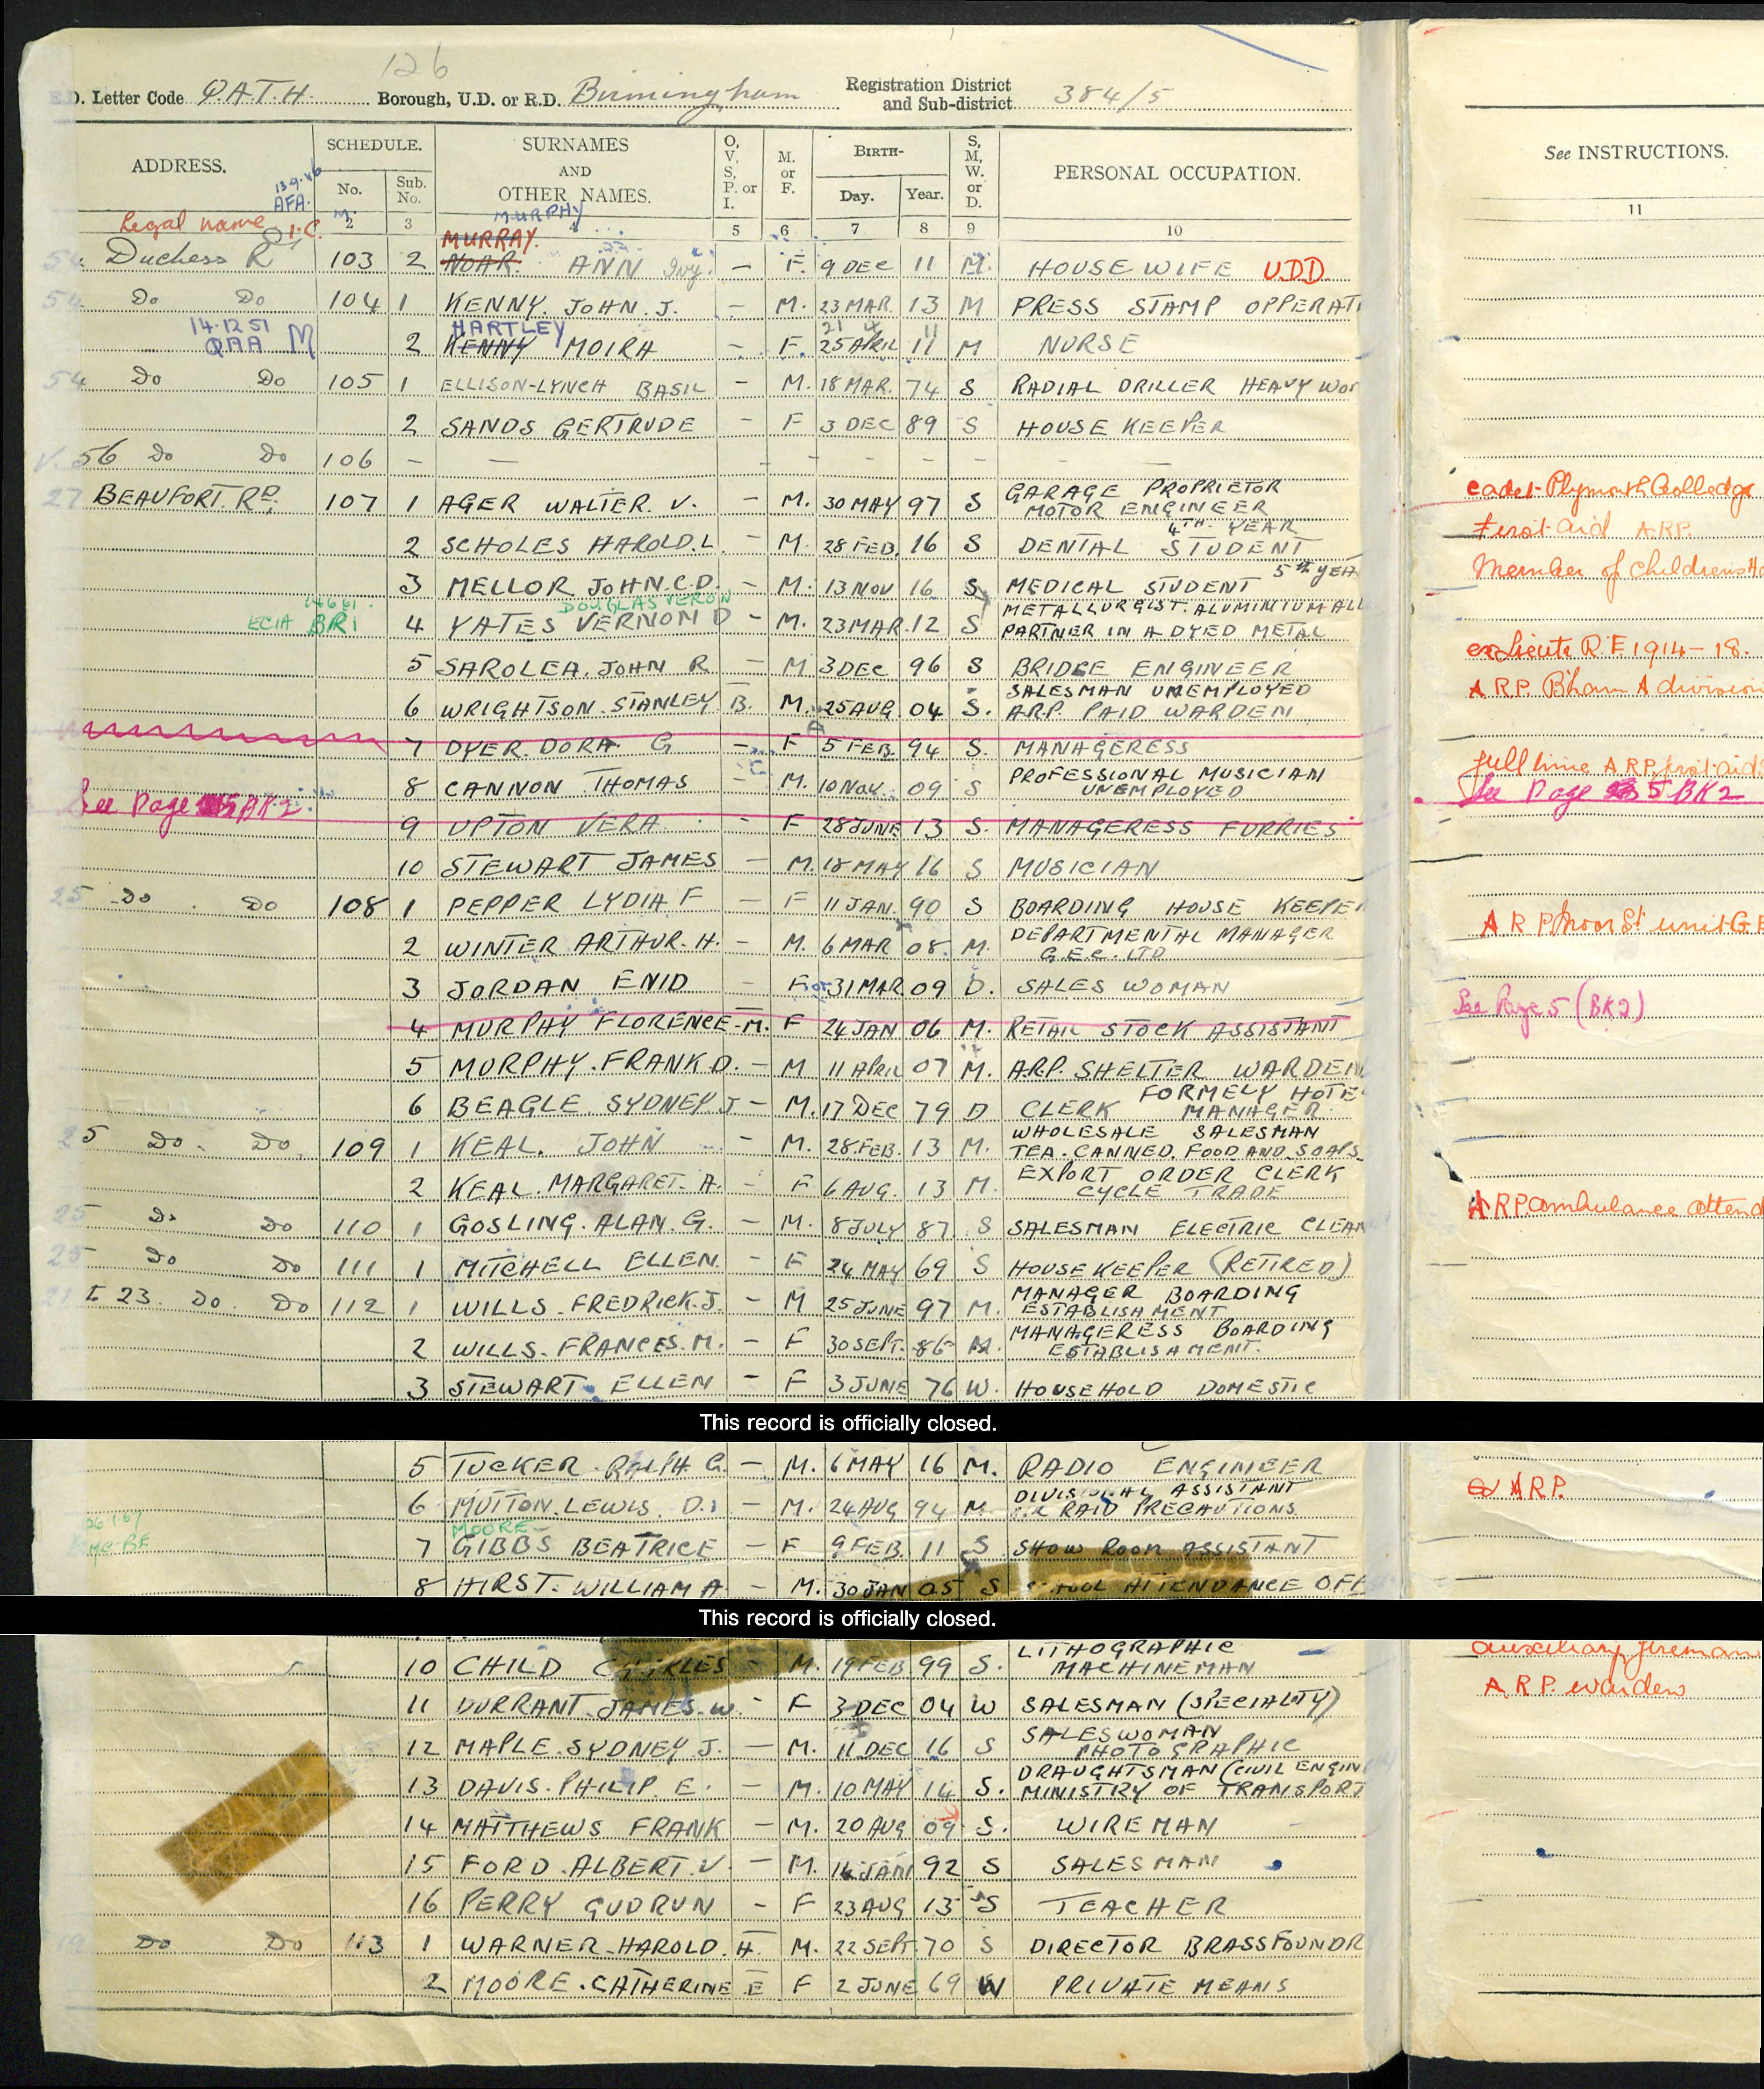 126
E.D. Letter Code Q.A.T.H. Borough, U.D. or R.D. Birmingham Registration District and Sub-district 384/5
ADDRESS. SCHEDULE. No. Sub. No. SURNAMES AND OTHER NAMES. O, V, S, P. or I. M. or F. BIRTH- Day. Year. S, M, W. or D. PERSONAL OCCUPATION. See INSTRUCTIONS.
13.9.46 AFA.
Legal name M. 2 3 4 5 6 7 8 9 10 11
MURPHY
MURRAY.
54 Duchess R 103 2 NOAR. ANN Ivy. — F. 9 DEC 11 M. HOUSE WIFE U.D.D.
54 Do Do 104 1 KENNY. JOHN. J. — M. 23 MAR. 13 M PRESS STAMP OPPERATI
14.12.51 HARTLEY 21 4 11
QAA M 2 KENNY MOIRA — F. 25 APRIL 11 M NURSE
54 Do Do 105 1 ELLISON-LYNCH BASIL — M. 18 MAR. 74 S RADIAL DRILLER HEAVY WOR
2 SANDS GERTRUDE — F 3 DEC 89 S HOUSE KEEPER
V. 56 Do Do 106 — — — — — — —
27 BEAUFORT. RD. 107 1 AGER WALTER. V. — M. 30 MAY 97 S GARAGE PROPRIETOR MOTOR ENGINEER cadet Plymouth Colledge
2 SCHOLES HAROLD. L. — M. 28 FEB. 16 S DENTAL STUDENT 4TH YEAR First aid A.R.P.
3 MELLOR JOHN. C. D. — M. 13 NOV 16 S MEDICAL STUDENT 5th YEA Member of Childrens Ho
DOUGLAS VERON
ECIA BRI 4 YATES VERNON D — M. 23 MAR. 12 S METALLURGIST. ALUMINIUM ALL PARTNER IN A DYED METAL
5 SAROLEA. JOHN R — M 3 DEC 96 S BRIDGE ENGINEER ex Lieute R.E 1914-18.
6 WRIGHTSON. STANLEY. B. M. 25 AUG. 04 S. SALESMAN UNEMPLOYED ARP. PAID WARDEN A.R.P. B'ham A division
7 DYER. DORA G — F 5 FEB. 94 S. MANAGERESS
8 CANNON THOMAS — M. 10 NOV. 09 S PROFESSIONAL MUSICIAN UNEMPLOYED full time A.R.P. first aid
See Page 5 BK 2. See Page 5 BK 2
9 UPTON VERA — F 28 JUNE 13 S. MANAGERESS FURRIES
10 STEWART JAMES — M. 18 MAY 16 S MUSICIAN
25 Do Do 108 1 PEPPER LYDIA F — F 11 JAN. 90 S BOARDING HOUSE KEEPE
2 WINTER ARTHUR. H. — M. 6 MAR 08. M. DEPARTMENTAL MANAGER G.E.C. LTD A.R.P. Moor St unit G E
3 JORDAN ENID — F 31 MAR. 09 D. SALES WOMAN
4 MURPHY FLORENCE. M. F 24 JAN 06 M. RETAIL STOCK ASSISTANT See Page 5 (BK2)
5 MURPHY. FRANK D. — M 11 APRIL 07 M. A.R.P. SHELTER WARDEN
6 BEAGLE SYDNEY J — M. 17 DEC 79 D CLERK FORMELY HOTE MANAGER.
25 Do. Do. 109 1 KEAL. JOHN — M. 28. FEB. 13 M. WHOLESALE SALESMAN TEA. CANNED. FOOD AND. SOAPS.
2 KEAL. MARGARET. A. — F 6 AUG. 13 M. EXPORT ORDER CLERK CYCLE TRADE
25 Do Do 110 1 GOSLING. ALAN. G. — M. 8 JULY 87. S SALESMAN ELECTRIC CLEAN A.R.P ambulance attend
25 Do Do 111 1 MITCHELL ELLEN. — F 24 MAY 69 S HOUSE KEEPER (RETIRED)
21 & 23. Do. Do 112 1 WILLS. FREDRICK. J. — M 25 JUNE 97 M. MANAGER BOARDING ESTABLISHMENT
2 WILLS. FRANCES. M. — F 30 SEPT. 86 M. MANAGERESS BOARDING ESTABLISHMENT.
3 STEWART. ELLEN — F 3 JUNE 76 W. HOUSEHOLD DOMESTIC
This record is officially closed.
5 TUCKER. RALPH. G. — M. 6 MAY 16 M. RADIO ENGINEER
6 MUTTON. LEWIS. D. — M. 24 AUG 94 M DIVISIONAL ASSISTANT RAID PRECAUTIONS. A.R.P.
MOORE
7 GIBBS BEATRICE — F 9 FEB. 11 S SHOW ROOM ASSISTANT
8 HIRST. WILLIAM A. — M. 30 JAN 05 S SCHOOL ATTENDANCE OFF
This record is officially closed.
10 CHILD CHARLES — M. 19 FEB 99 S. LITHOGRAPHIC MACHINEMAN auxiliary fireman
11 DURRANT. JAMES. W. — F 3 DEC 04 W SALESMAN (SPECIALITY) A.R.P. warden
12 MAPLE. SYDNEY J. — M. 11 DEC 16 S SALESWOMAN PHOTOGRAPHIC
13 DAVIS. PHILIP. E. — M. 10 MAY 14 S. DRAUGHTSMAN (CIVIL ENGIN MINISTRY OF TRANSPORT
14 MATTHEWS FRANK — M. 20 AUG 09 S. WIREMAN
15 FORD. ALBERT. V. — M. 14 JAN 92 S SALESMAN
16 PERRY GUDRUN — F 23 AUG 13 S TEACHER
19 Do Do 113 1 WARNER. HAROLD. H. M. 22 SEPT. 70 S DIRECTOR BRASSFOUNDR
2 MOORE. CATHERINE E F 2 JUNE 69 W PRIVATE MEANS